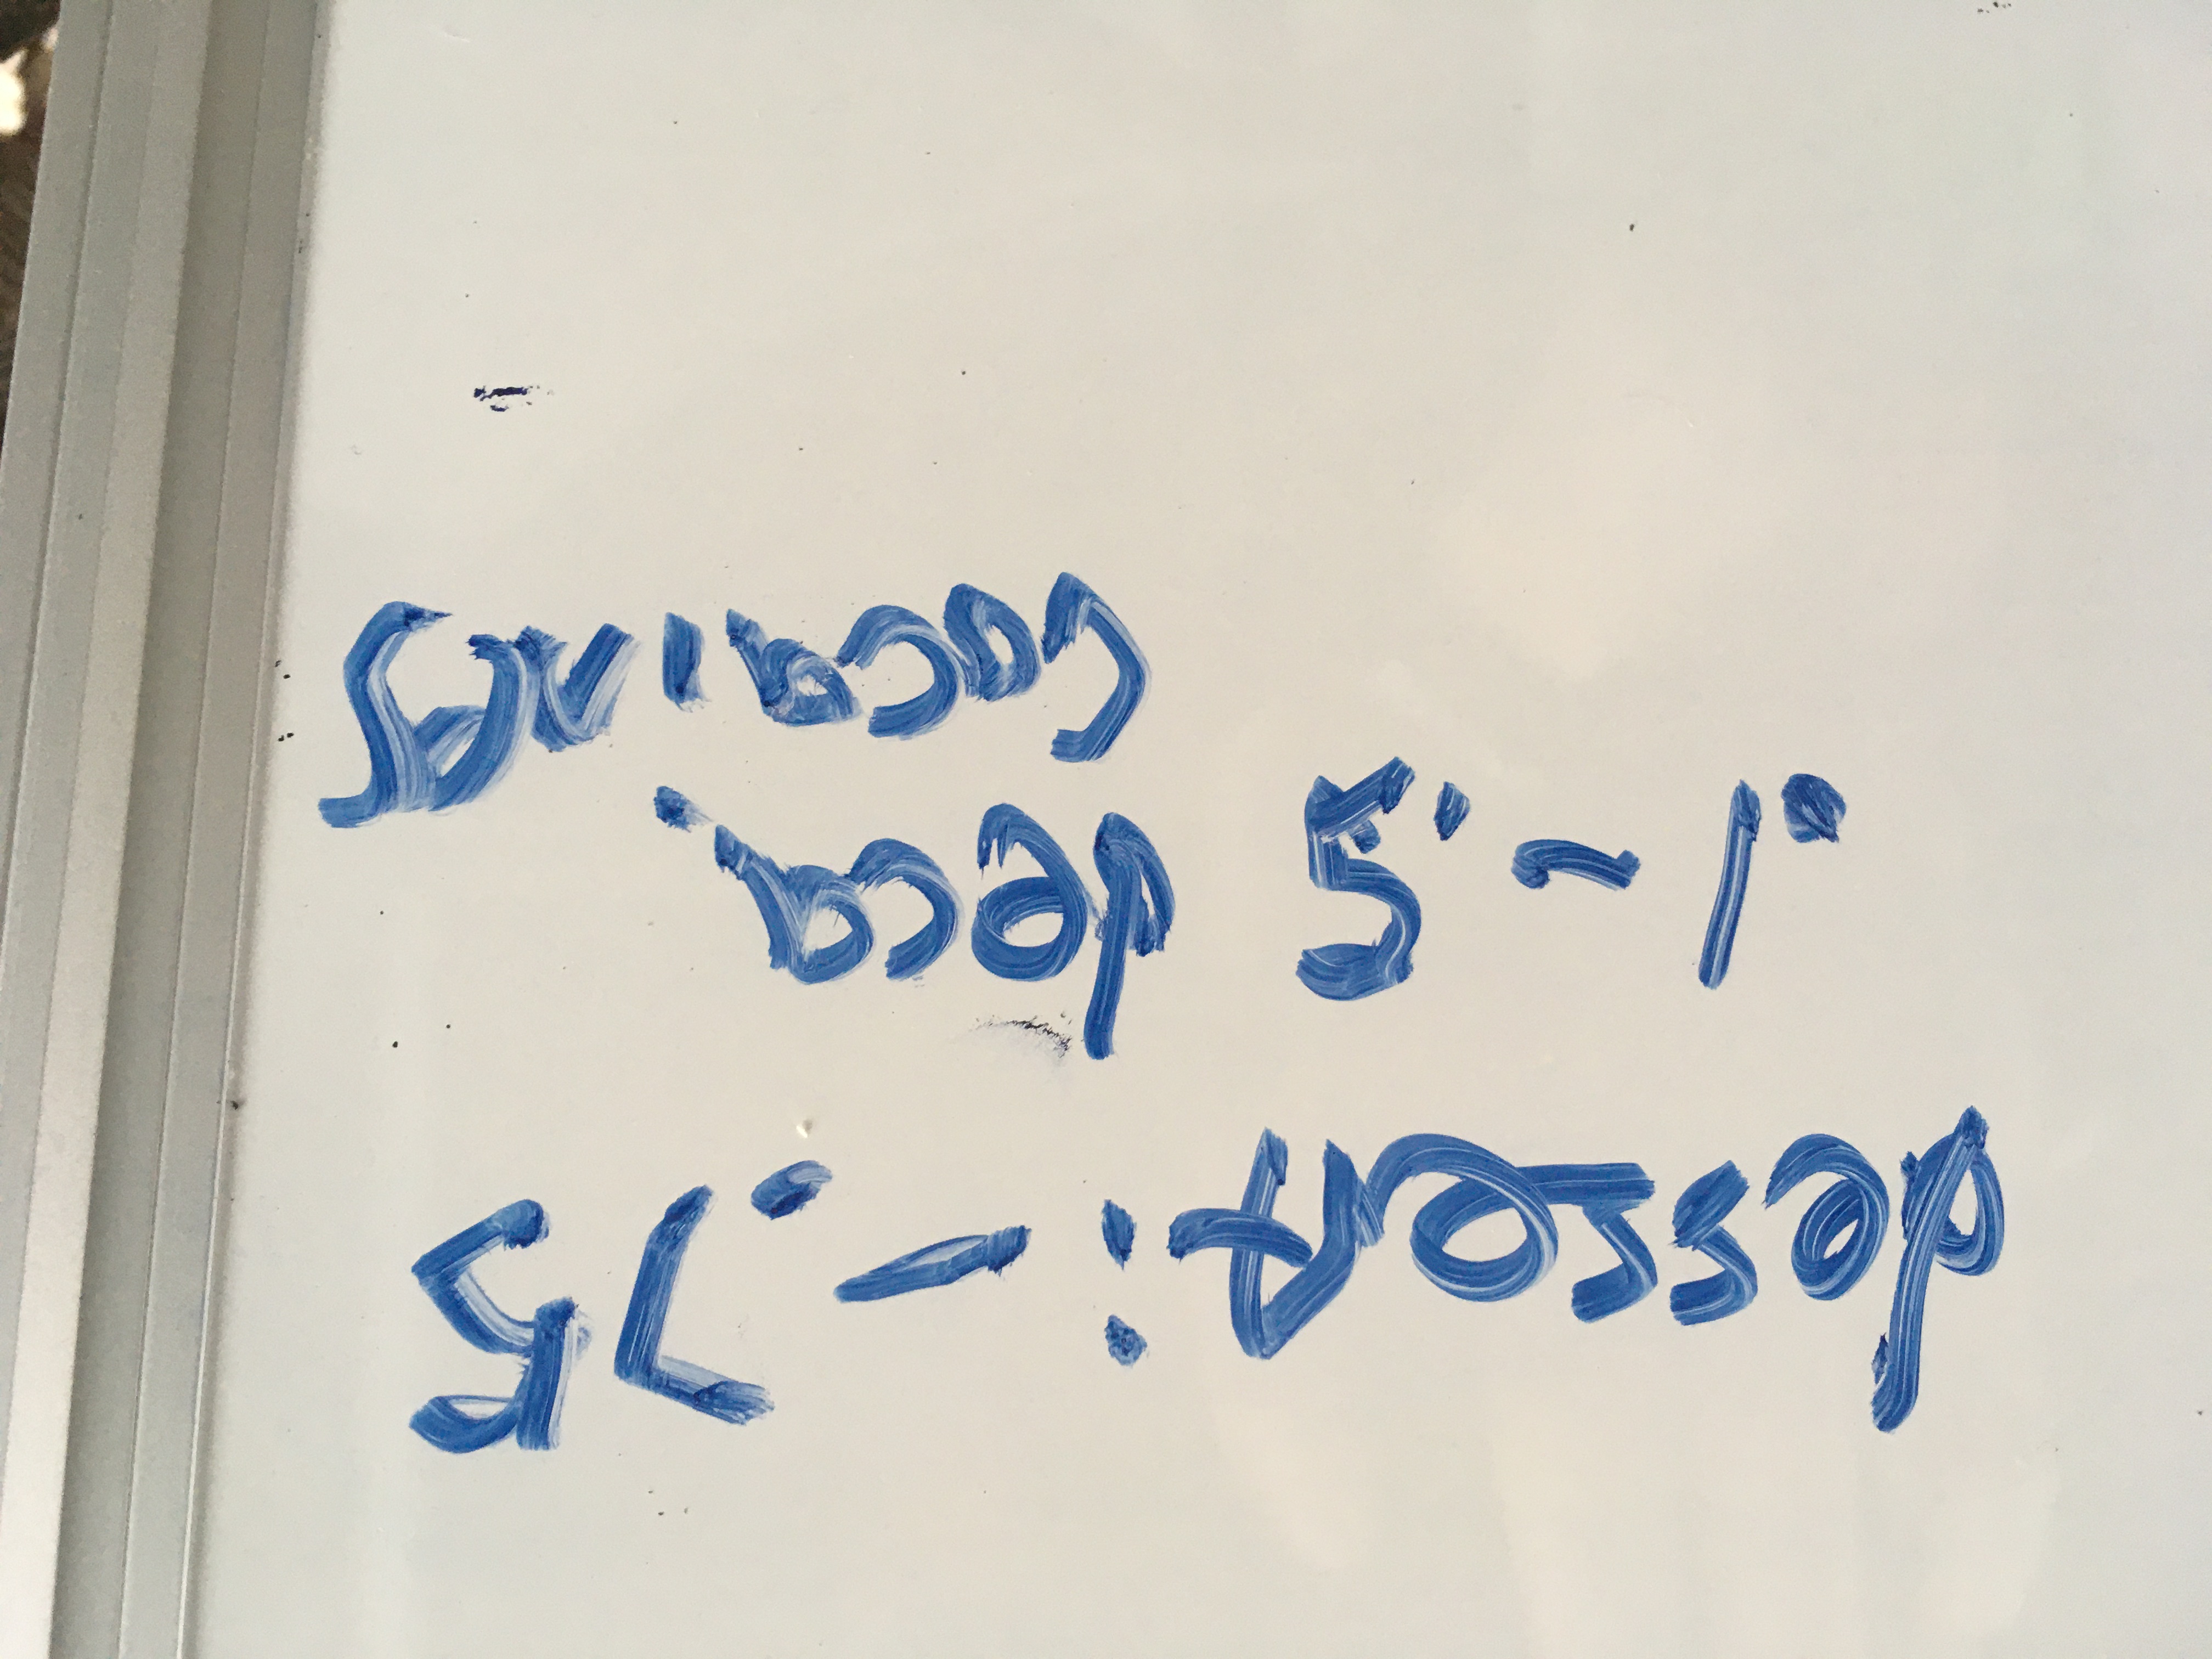 dessert: - .75
.1 - .5 deca
cocaines